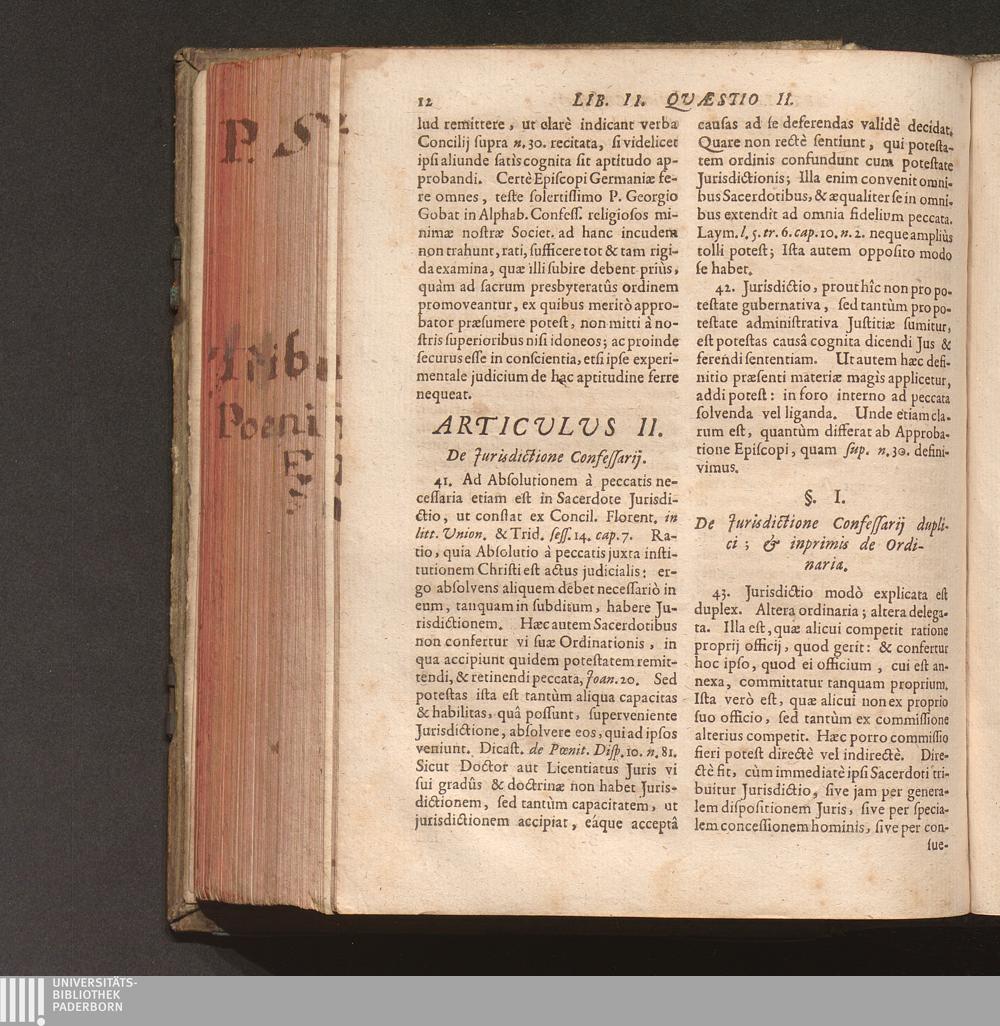 12 LIB. II. QVÆSTIO II.
lud remittere, ut clarè indicant verba
Concilij ſupra n. 30. recitata, ſi videlicet
ipſi aliunde ſatìs cognita ſit aptitudo ap-
probandi. Certè Epiſcopi Germaniæ fe-
re omnes, teſte ſolertiſſimo P. Georgio
Gobat in Alphab. Confeſſ. religioſos mi-
nimæ noſtræ Societ. ad hanc incudem
non trahunt, rati, ſufficere tot & tam rigi-
da examina, quæ illi ſubire debent priùs,
quàm ad ſacrum presbyteratûs ordinem
promoveantur, ex quibus meritò appro-
bator præſumere poteſt, non mitti à no-
ſtris ſuperioribus niſi idoneos; ac proinde
ſecurus eſſe in conſcientia, etſi ipſe experi-
mentale judicium de hac aptitudine ferre
nequeat.
ARTICULUS II.
De Jurisdictione Confeſſarij.
41. Ad Abſolutionem à peccatis ne-
ceſſaria etiam eſt in Sacerdote Jurisdi-
ctio, ut conſtat ex Concil. Florent. in
litt. Union. & Trid. ſeſſ. 14. cap. 7. Ra-
tio, quia Abſolutio à peccatis juxta inſti-
tutionem Chriſti eſt actus judicialis: er-
go abſolvens aliquem debet neceſſariò in
eum, tanquam in ſubditum, habere Ju-
risdictionem. Hæc autem Sacerdotibus
non confertur vi ſuæ Ordinationis, in
qua accipiunt quidem poteſtatem remit-
tendi, & retinendi peccata, Joan. 20. Sed
poteſtas iſta eſt tantùm aliqua capacitas
& habilitas, quâ poſſunt, ſuperveniente
Jurisdictione, abſolvere eos, qui ad ipſos
veniunt. Dicaſt. de Pœnit. Diſp. 10. n. 81.
Sicut Doctor aut Licentiatus Juris vi
ſui gradûs & doctrinæ non habet Juris-
dictionem, ſed tantùm capacitatem, ut
jurisdictionem accipiat, eáque acceptâ
cauſas ad ſe deferendas validè decidat.
Quare non rectè ſentiunt, qui poteſta-
tem ordinis confundunt cum poteſtate
Jurisdictionis; Illa enim convenit omni-
bus Sacerdotibus, & æqualiter ſe in omni-
bus extendit ad omnia fidelium peccata.
Laym. l. 5. tr. 6. cap. 10. n. 2. neque ampliùs
tolli poteſt; Iſta autem oppoſito modo
ſe habet.
42. Jurisdictio, prout hîc non pro po-
teſtate gubernativa, ſed tantùm pro po-
teſtate adminiſtrativa Juſtitiæ ſumitur,
eſt poteſtas causâ cognita dicendi Jus &
ferendi ſententiam. Ut autem hæc defi-
nitio præſenti materiæ magìs applicetur,
addi poteſt: in foro interno ad peccata
ſolvenda vel liganda. Unde etiam cla-
rum eſt, quantùm differat ab Approba-
tione Epiſcopi, quam ſup. n. 30. defini-
vimus.
§. I.
De Jurisdictione Confeſſarij dupli-
ci; & inprimis de Ordi-
naria.
43. Jurisdictio modò explicata eſt
duplex. Altera ordinaria; altera delega-
ta. Illa eſt, quæ alicui competit ratione
proprij officij, quod gerit: & confertur
hoc ipſo, quod ei officium, cui eſt an-
nexa, committatur tanquam proprium.
Iſta verò eſt, quæ alicui non ex proprio
ſuo officio, ſed tantùm ex commiſſione
alterius competit. Hæc porro commiſſio
fieri poteſt directè vel indirectè. Dire-
ctè fit, cùm immediatè ipſi Sacerdoti tri-
buitur Jurisdictio, ſive jam per genera-
lem diſpoſitionem Juris, ſive per ſpecia-
lem conceſſionem hominis, ſive per con-
ſue-
P. S
Tribu
Poeni
UNIVERSITÄTS-
BIBLIOTHEK
PADERBORN